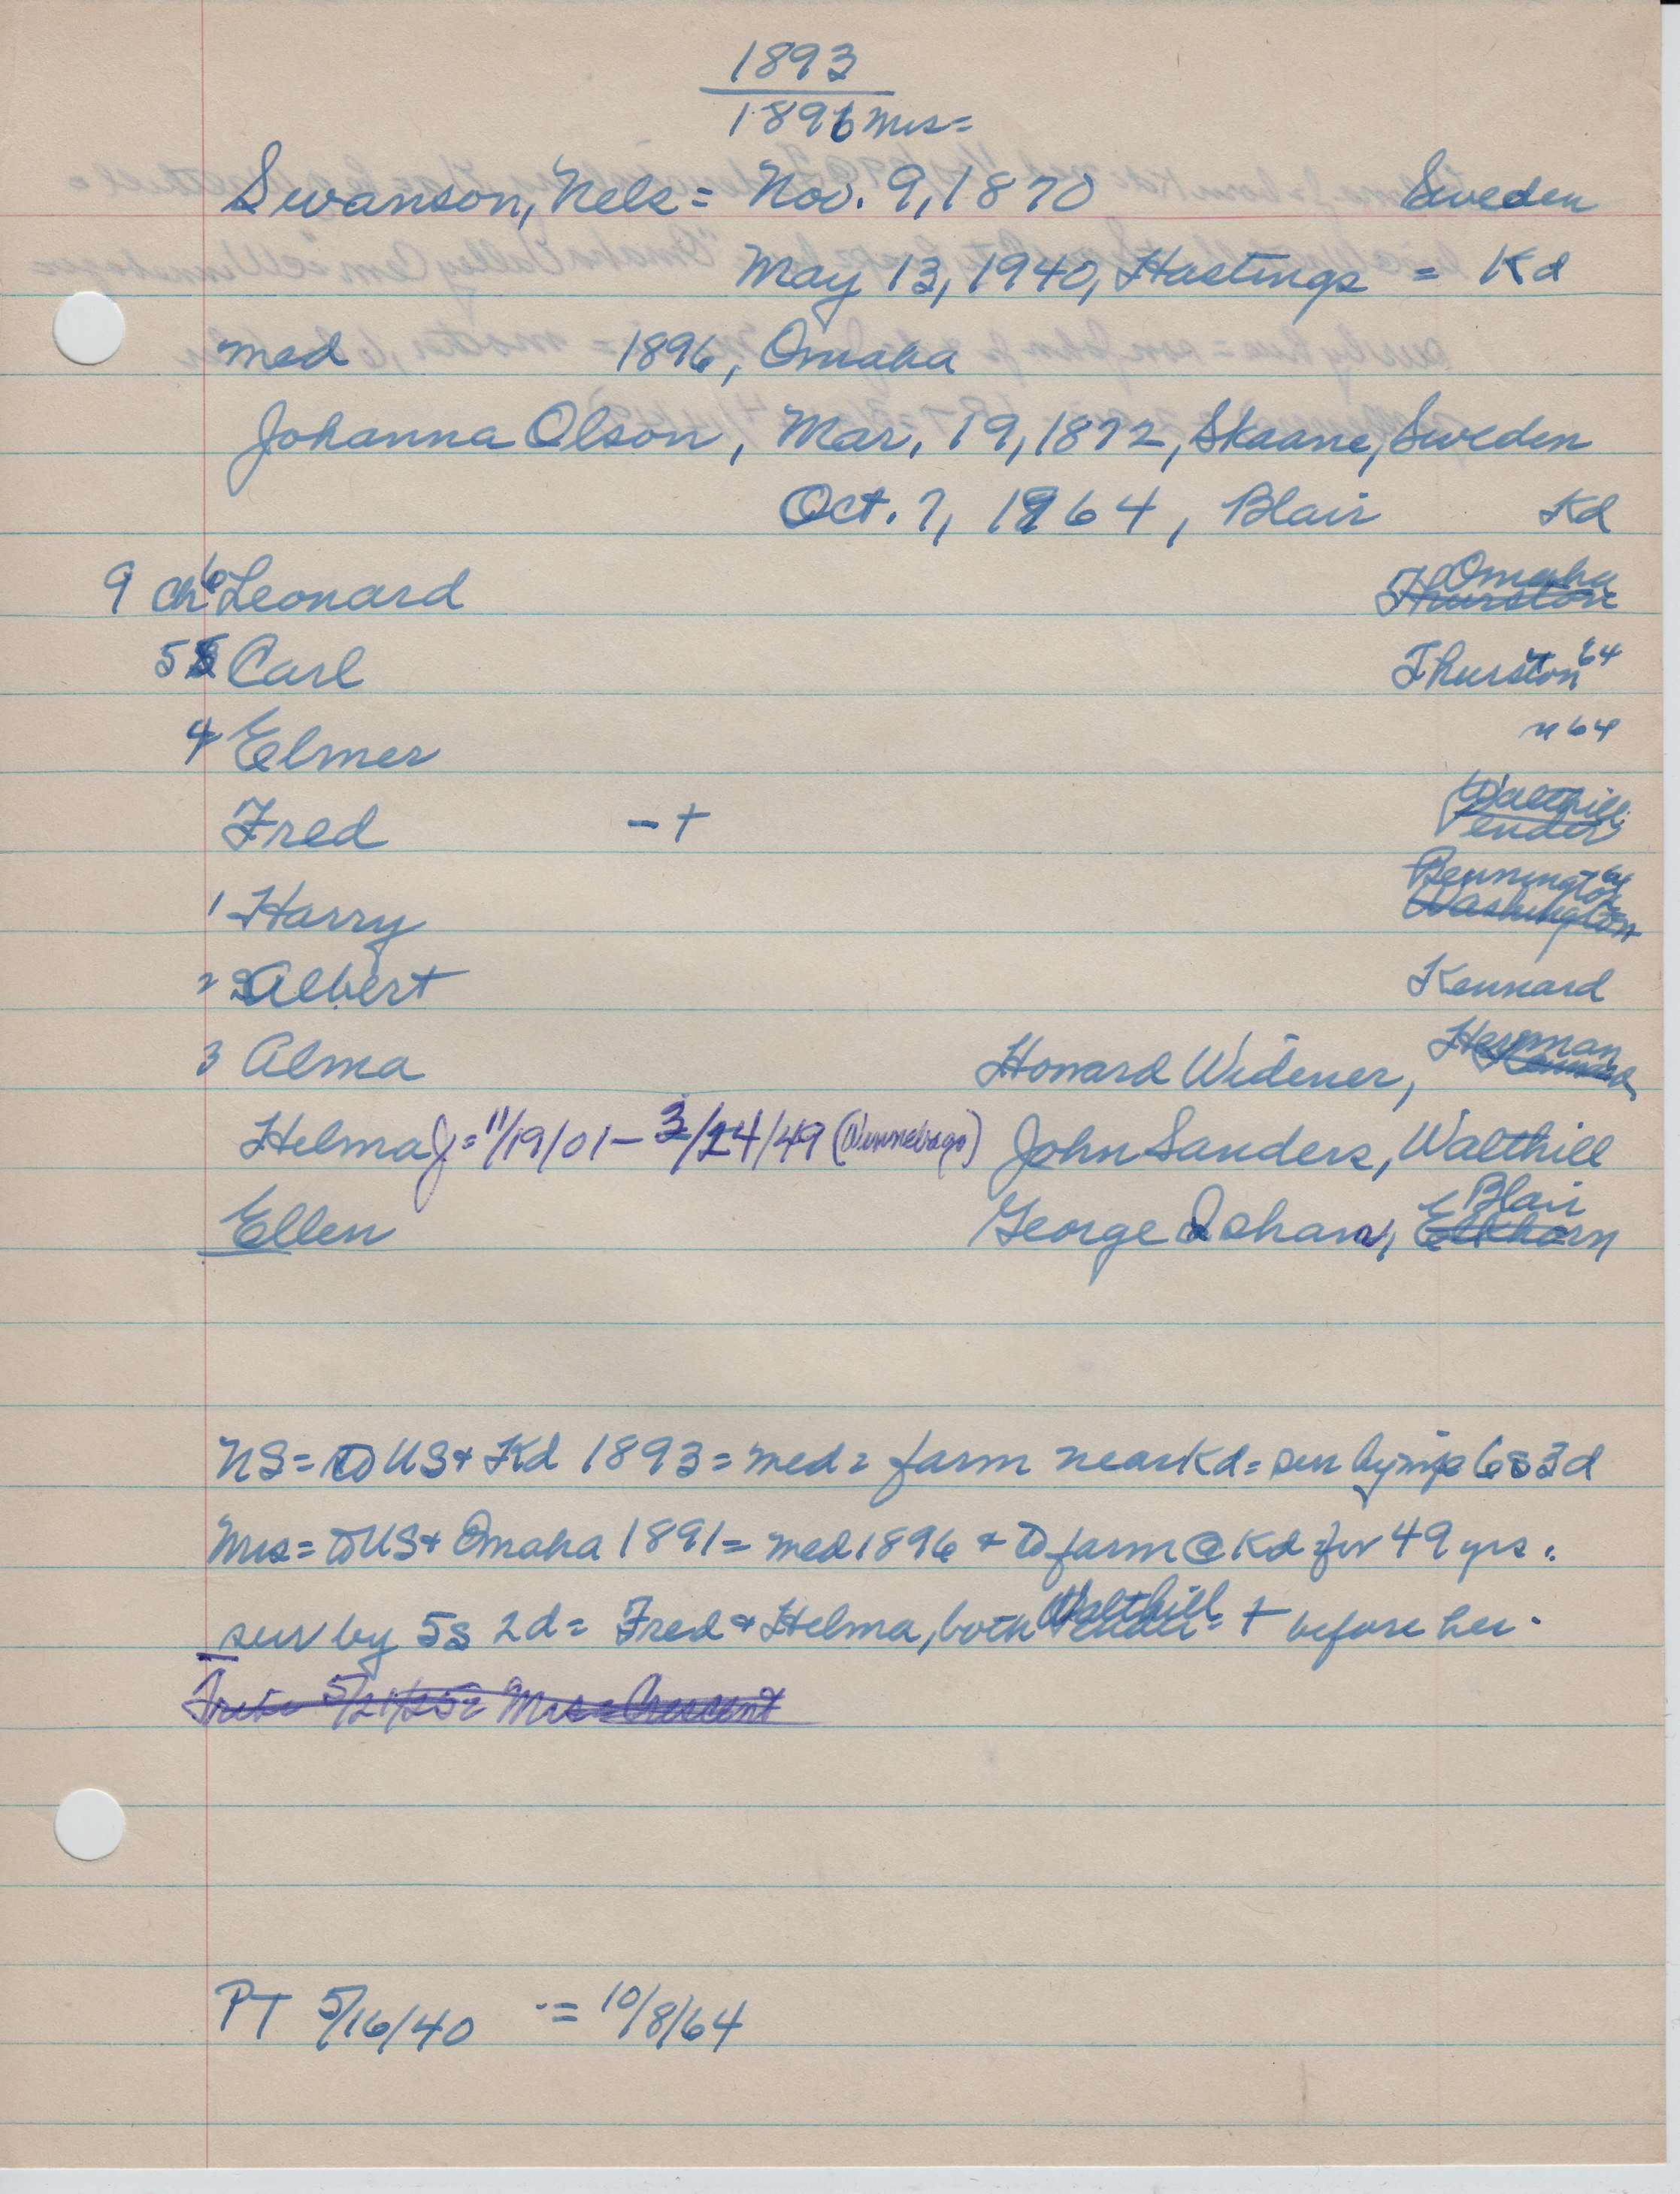 1893
1896 Mrs =
Swanson, Nels = Nov. 9, 1870 Sweden
May 13, 1940, Hastings = Kd
med 1896, Omaha
Johanna Olson, Mar. 19, 1872, Skaane, Sweden
Oct. 7, 1964, Blair Kd
9 ch 6 Leonard Omaha Thurston
5 5 Carl Thurston 64
4 Elmer " 64
Fred - + Walthill Pender
1 Harry Bennington 64 Washington
2 Albert Kennard
3 Alma Howard Widener, Herman Kennard
Helma J = 11/19/01 - 3/24/49 (Winnebago) John Sanders, Walthill
Ellen George Blair Elkhorn
NS = to US + Kd 1893 = med = farm near Kd = sur by 6s 3d
Mrs = to US + Omaha 1891 = med 1896 + to farm @ Kd for 49 yrs.
sur by 5s 2d = Fred + Helma, both Walthill Pender = + before her -
5/21/25 = Mrs = Crescent
PT 5/16/40 - = 10/8/64